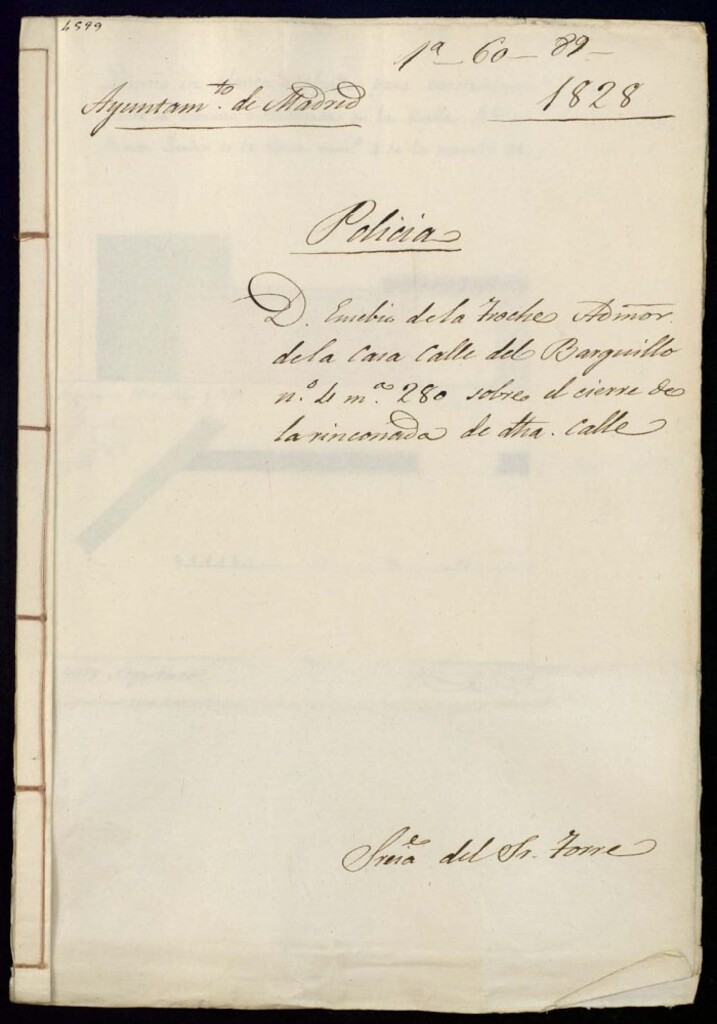 4599
1ª - 60 - 89 -
Ayuntam.to de Madrid 1828
Policia
D. Eusebio de la Troche Admõr.
de la casa calle del Barquillo
n.º 4 m.ª 280 sobre el cierre de
la rinconada de dha. calle
Sria del Sr. Torre